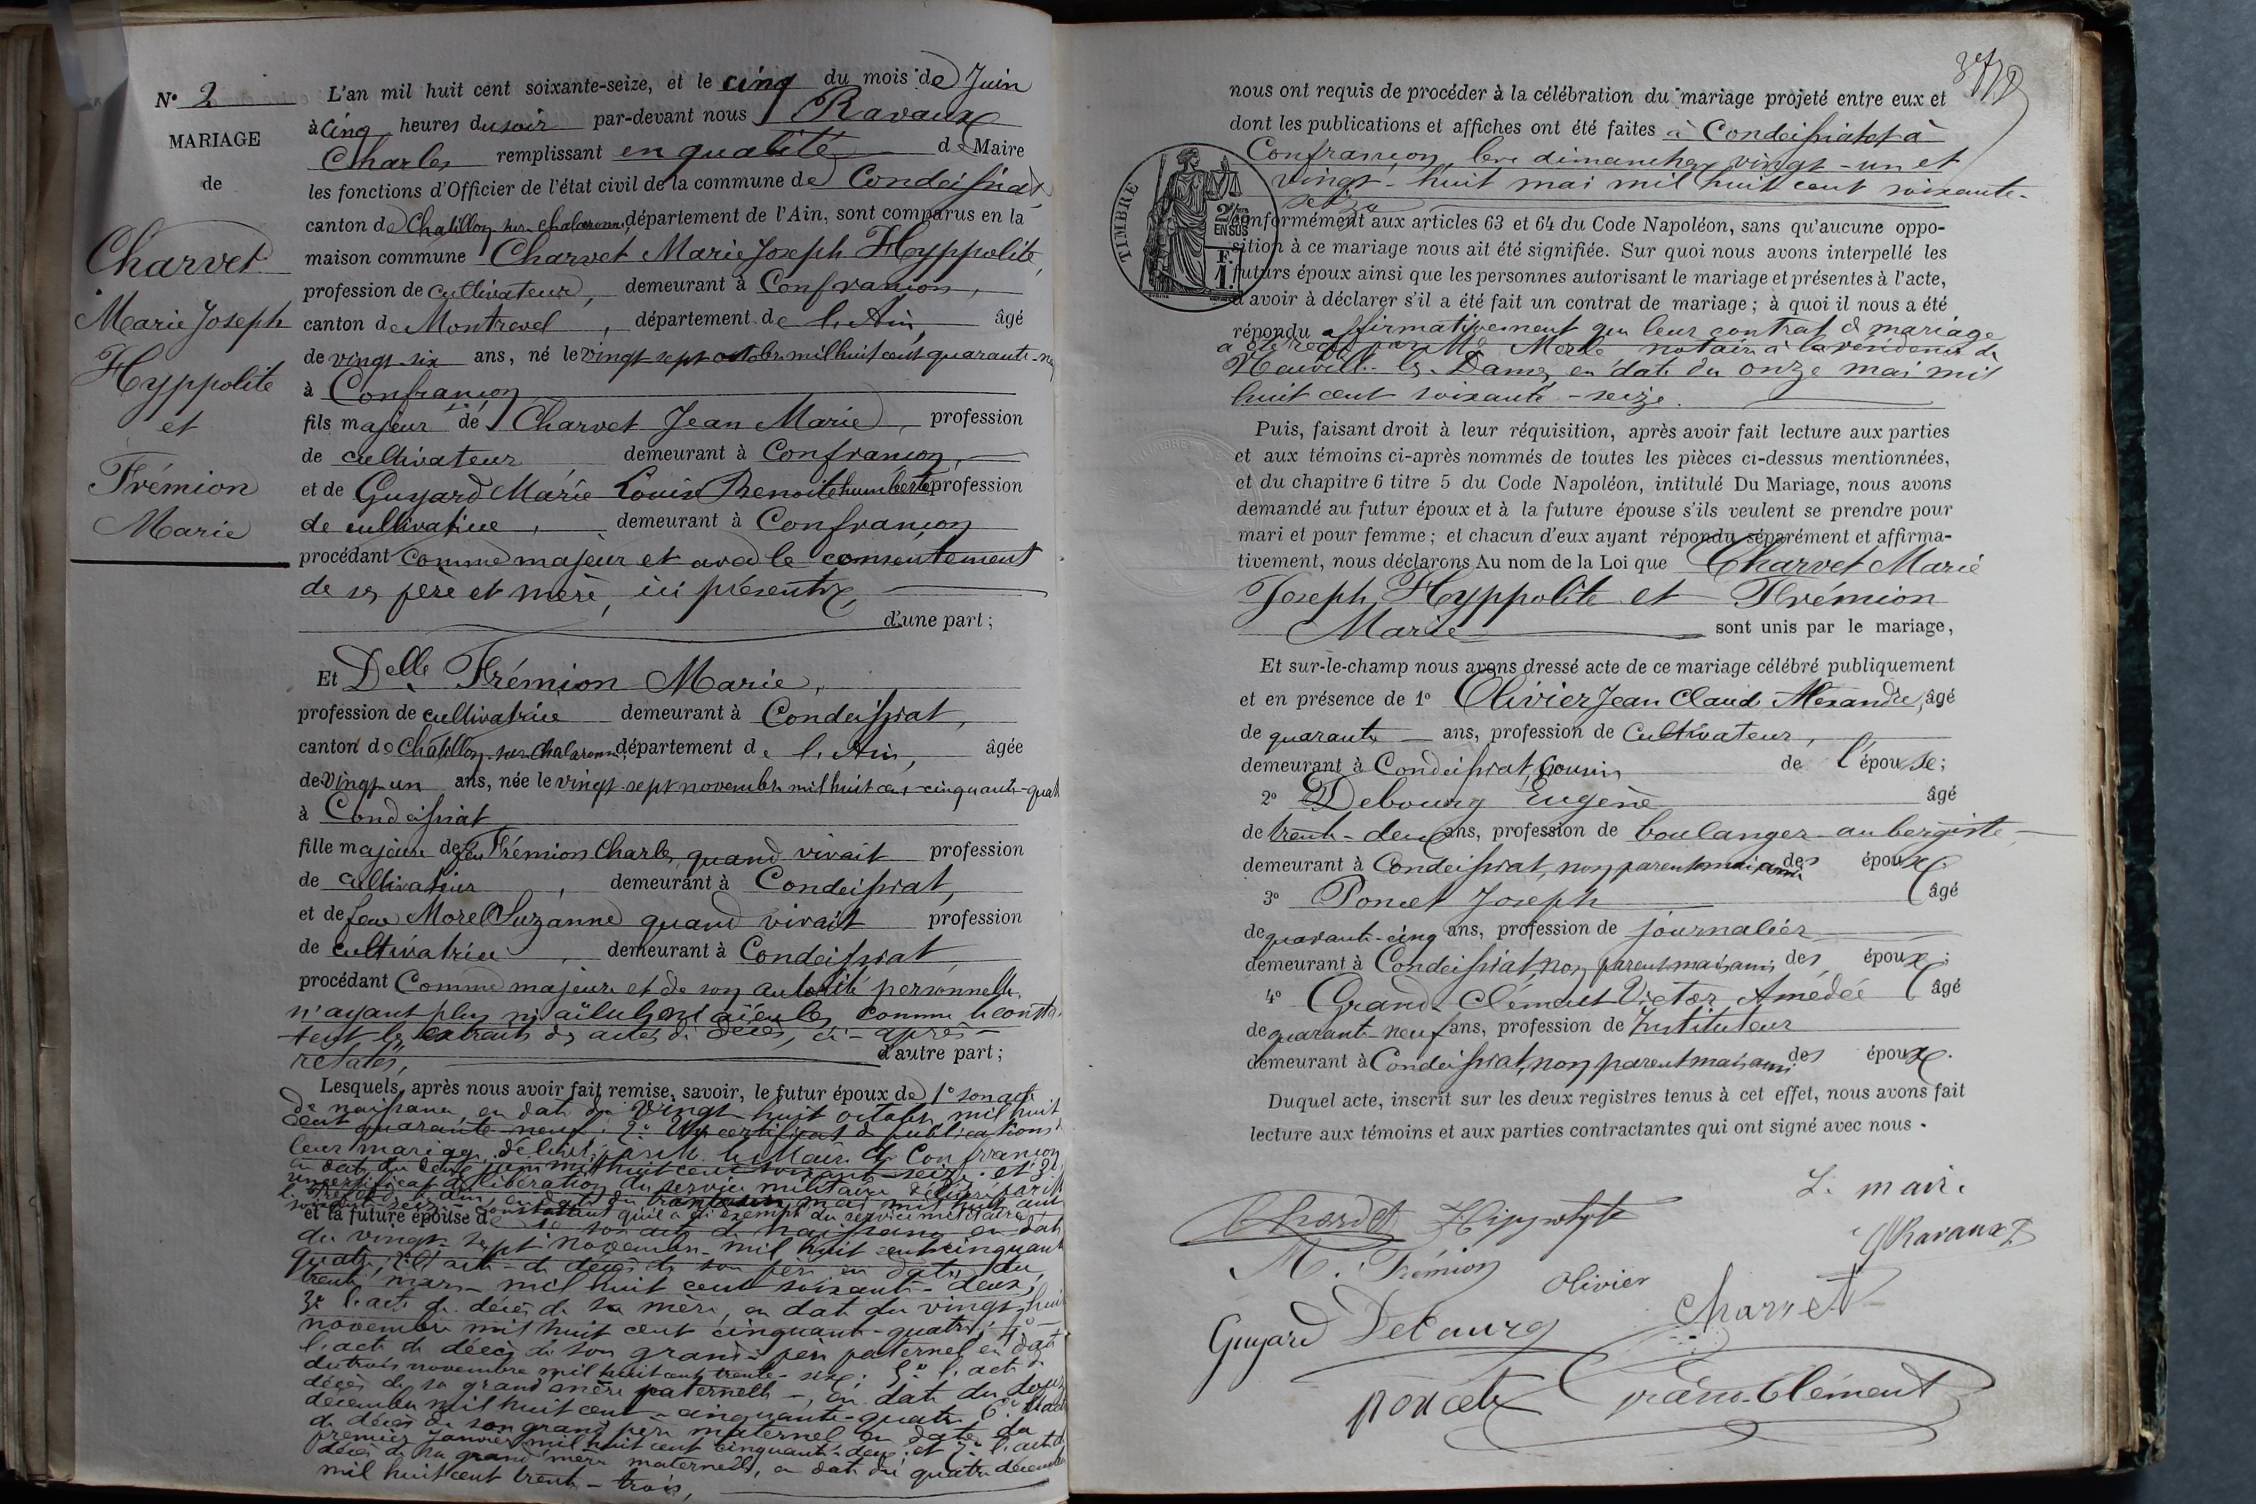 N° 2
MARIAGE
de
Charvet
Marie Joseph
Hyppolite
et
Frémion
Marie
L'an mil huit cent soixante-seize, et le cinq du mois de Juin
à cinq heures du soir par-devant nous Ravaux
Charles remplissant en qualité de Maire
les fonctions d'Officier de l'état civil de la commune de Condeissiat,
canton de Chatillon sur Chalaronne, département de l'Ain, sont comparus en la
maison commune Charvet Marie Joseph Hyppolite,
profession de cultivateur, demeurant à Confrançon,
canton de Montrevel, département de l'Ain, âgé
de vingt-six ans, né le vingt sept octobre mil huit cent quarante-neuf
à Confrançon
fils majeur de Charvet Jean Marie, profession
de cultivateur demeurant à Confrançon,
et de Guyard Marie Louise Benoite humberte profession
de cultivatrice, demeurant à Confrançon
procédant comme majeur et avec le consentement
de ses père et mère, ici présents,
d'une part ;
Et Delle Frémion Marie,
profession de cultivatrice demeurant à Condeissiat,
canton de Châtillon sur Chalaronne, département de l'Ain, âgée
de vingt un ans, née le vingt sept novembre mil huit cent cinquante-quatre
à Condeissiat
fille majeure de feu Frémion Charles quand vivait profession
de cultivateur, demeurant à Condeissiat,
et de feue Morel Suzanne quand vivait profession
de cultivatrice, demeurant à Condeissiat,
procédant Comme majeure et de son autorité personnelle,
n'ayant plus ni aïeuls ni aïeules comme le consta-
tent les extraits des actes de décès, ci-après
relatés, d'autre part ;
Lesquels, après nous avoir fait remise, savoir, le futur époux de 1° son acte
de naissance, en date du vingt huit octobre mil huit
cent quarante-neuf ; 2° Un certificat de publications de
leur mariage, délivré par M. le Maire de Confrançon
en date du deux juin mil huit cent soixante-seize, et 3°
un certificat de libération du service militaire délivré par M.
constatant qu'il a été exempté du service militaire
et la future épouse de 1° son acte de naissance en date
du vingt-sept novembre mil huit cent cinquante
quatre ; 2° l'acte de décès de son père en date du
trente mars mil huit cent soixante-deux ;
3° l'acte de décès de sa mère, en date du vingt-huit
novembre mil huit cent cinquante-quatre ; 4°
l'acte de décès de son grand-père paternel en date
du trois novembre mil huit cent trente-six ; 5° l'acte de
décès de sa grand mère paternelle, en date du douze
décembre mil huit cent cinquante-quatre 6° l'acte
de décès de son grand père maternel en date du
premier Janvier mil huit cent cinquante-deux ; et 7° l'acte de
décès de sa grand mère maternelle, en date du quatre décembre
mil huit cent trente-trois,
nous ont requis de procéder à la célébration du mariage projeté entre eux et
dont les publications et affiches ont été faites à Condeissiat et à
Confrançon, les dimanches vingt-un et
vingt-huit mai mil huit cent soixante-
seize
TIMBRE
EN SUS
conformément aux articles 63 et 64 du Code Napoléon, sans qu'aucune oppo-
sition à ce mariage nous ait été signifiée. Sur quoi nous avons interpellé les
futurs époux ainsi que les personnes autorisant le mariage et présentes à l'acte,
d'avoir à déclarer s'il a été fait un contrat de mariage ; à quoi il nous a été
répondu affirmativement que leur contrat de mariage
a été reçu par Me Merle notaire à la résidence de
Neuville-les-Dames, en date du onze mai mil
huit cent soixante-seize.
Puis, faisant droit à leur réquisition, après avoir fait lecture aux parties
et aux témoins ci-après nommés de toutes les pièces ci-dessus mentionnées,
et du chapitre 6 titre 5 du Code Napoléon, intitulé Du Mariage, nous avons
demandé au futur époux et à la future épouse s'ils veulent se prendre pour
mari et pour femme ; et chacun d'eux ayant répondu séparément et affirma-
tivement, nous déclarons Au nom de la Loi que Charvet Marie
Joseph Hyppolite et Frémion
Marie sont unis par le mariage,
Et sur-le-champ nous avons dressé acte de ce mariage célébré publiquement
et en présence de 1° Olivier Jean Claude Alexandre, âgé
de quarante ans, profession de Cultivateur,
demeurant à Condeissiat, Cousin de l'épouse ;
2° Debourg Eugène âgé
de trente-deux ans, profession de boulanger-aubergiste
demeurant à Condeissiat, non parent mais ami des époux ;
3° Poncet Joseph âgé
de quarante-cinq ans, profession de journalier
demeurant à Condeissiat, non parent mais ami des époux ;
4° Grand-Clément Victor Amédée âgé
de quarante-neuf ans, profession de Instituteur
demeurant à Condeissiat, non parent mais ami des époux.
Duquel acte, inscrit sur les deux registres tenus à cet effet, nous avons fait
lecture aux témoins et aux parties contractantes qui ont signé avec nous.
Le maire
Charvet Hippolyte
Ravaux
M. Frémion
Olivier
Charvet
Guyard Debourg
Poncet
Grand-Clément